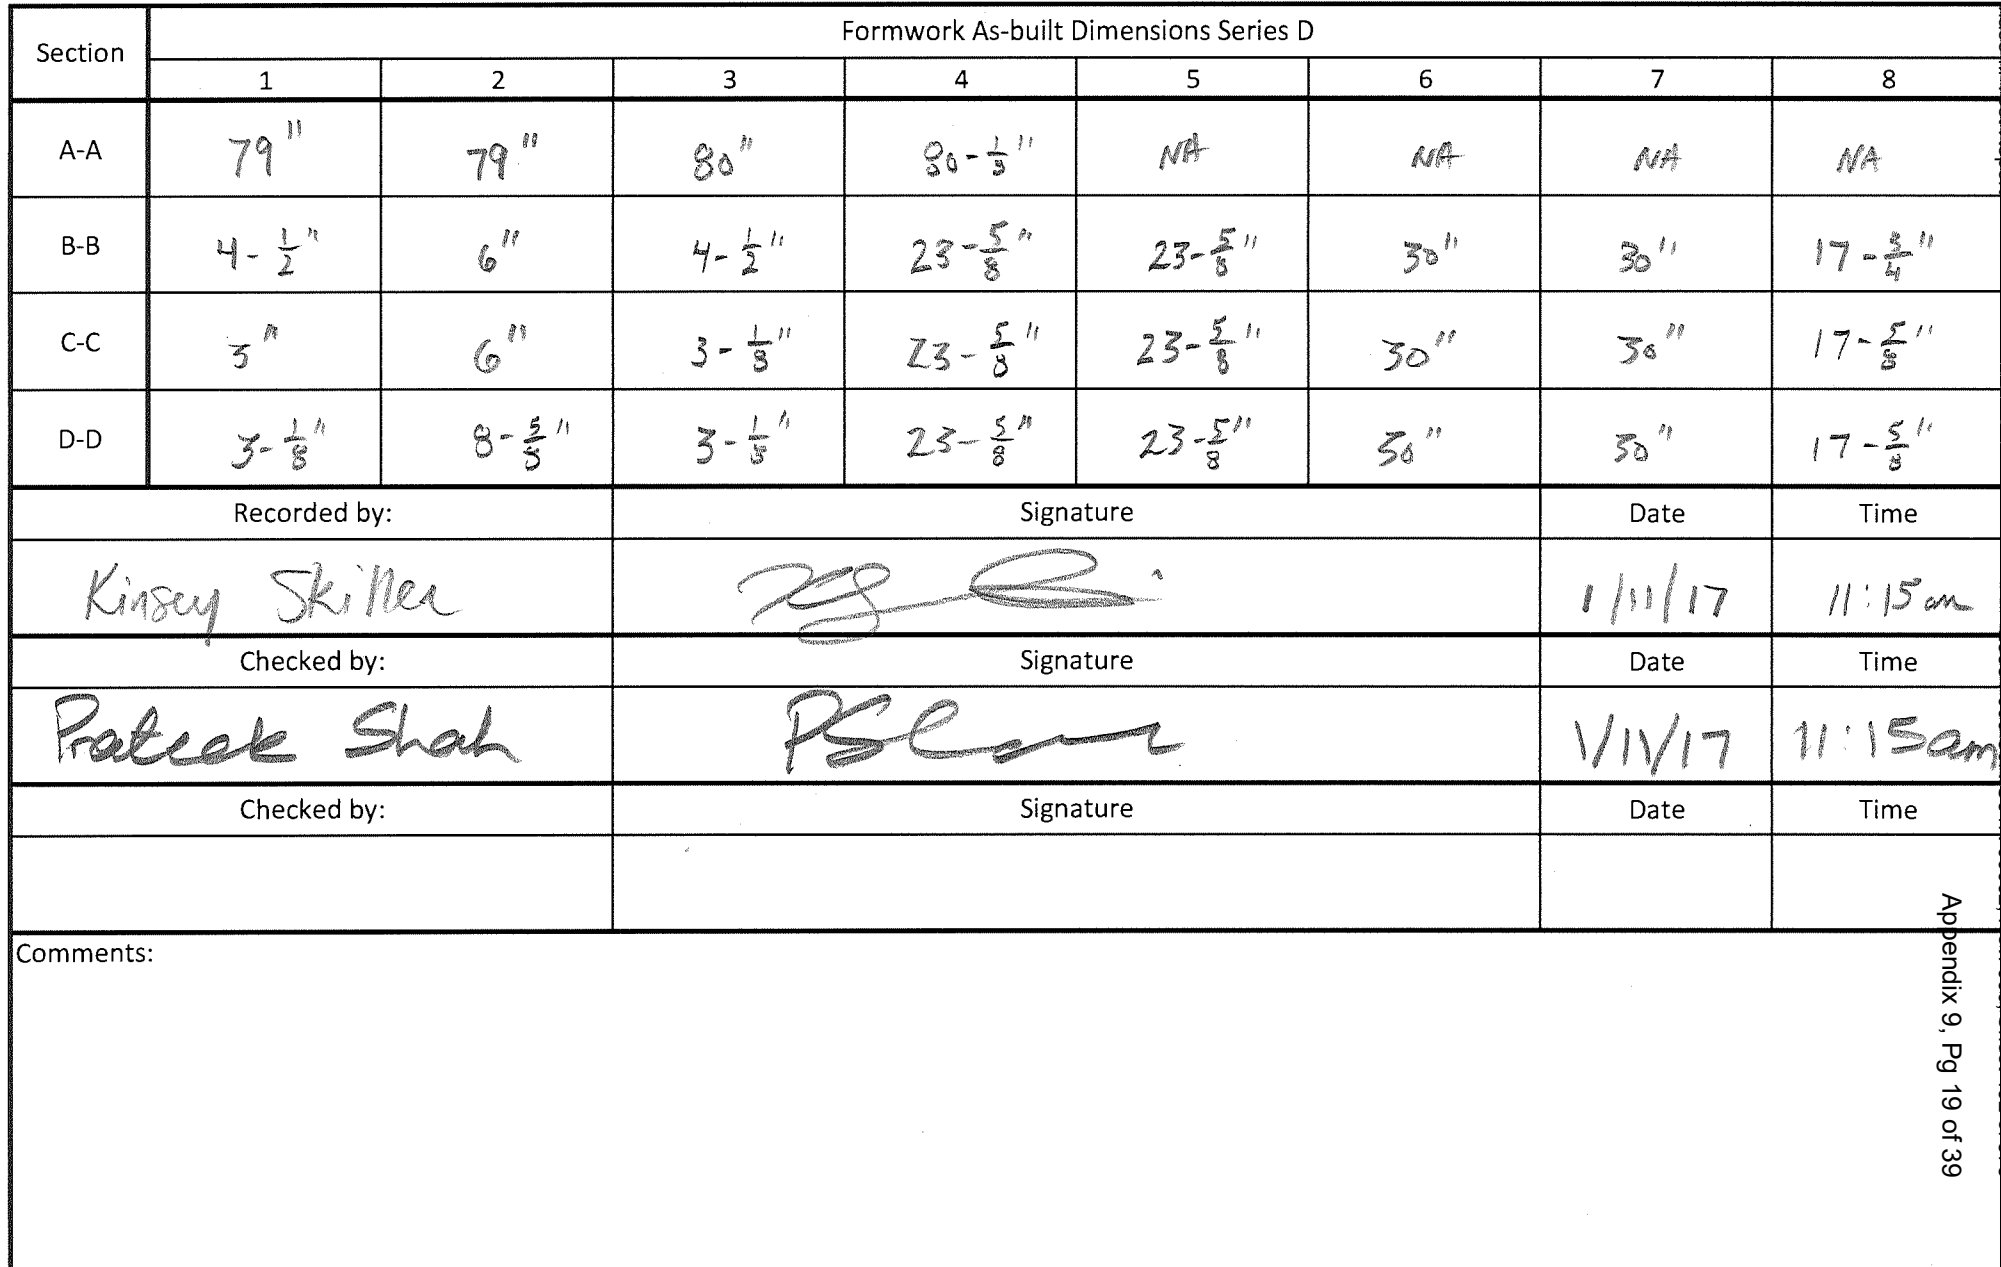 Section Formwork As-built Dimensions Series D
1 2 3 4 5 6 7 8
A-A 79" 79" 80" 80-1/8" NA NA NA NA
B-B 4-1/2" 6" 4-1/2" 23-5/8" 23-5/8" 30" 30" 17-5/4"
C-C 3" 6" 3-1/8" 23-5/8" 23-5/8" 30" 30" 17-5/8"
D-D 3-1/8" 8-5/8" 3-1/8" 23-5/8" 23-5/8" 30" 30" 17-5/8"
Recorded by: Signature Date Time
Kinsey Skiller 1/11/17 11:15am
Checked by: Signature Date Time
Prateek Shah PShah 1/11/17 11:15am
Checked by: Signature Date Time
Comments:
Appendix 9, Pg 19 of 39